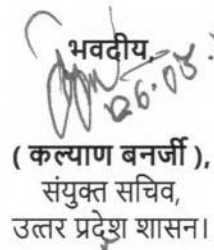 भवदीय,
26.08
( कल्याण बनर्जी ),
संयुक्त सचिव,
उत्तर प्रदेश शासन।